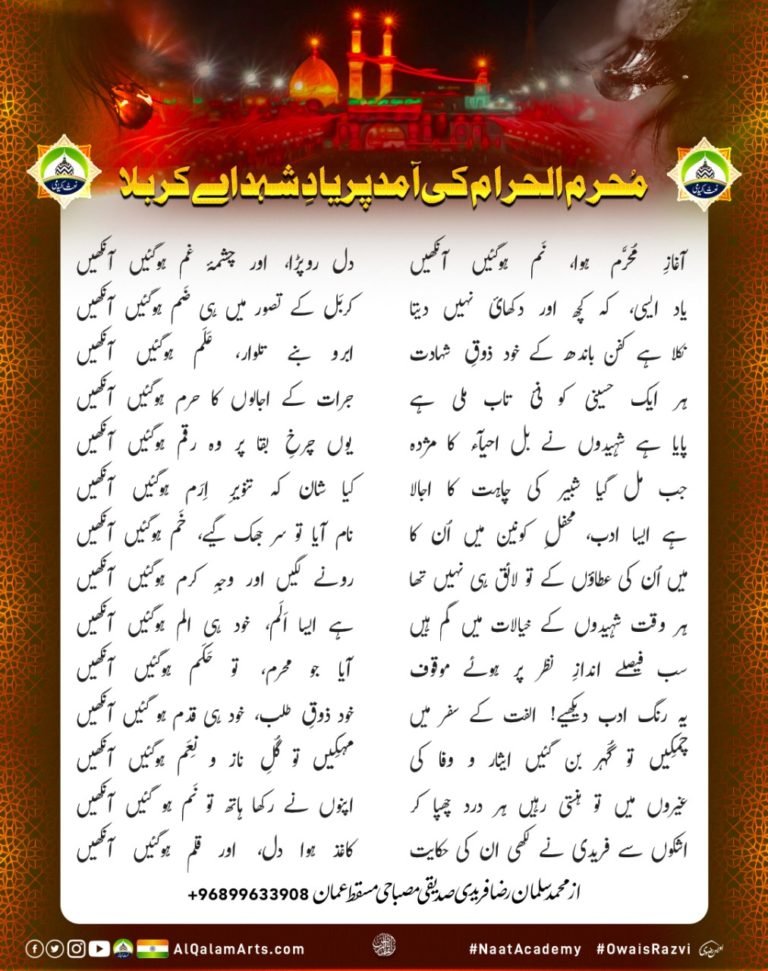 مُحرم الحرام کی آمد پر یادِ شہداے کربلا
آغازِ مُحرَّم ہوا، نَم ہوگئیں آنکھیں دل رو پڑا، اور چشمۂ غم ہوگئیں آنکھیں
یاد ایسی، کہ کچھ اور دکھائ نہیں دیتا کربَل کے تصور میں ہی ضَم ہوگئیں آنکھیں
نکلا ہے کفن باندھ کے خود ذوقِ شہادت ابرو بنے تلوار، عَلَم ہوگئیں آنکھیں
ہر ایک حسینی کو نئی تاب ملی ہے جرات کے اجالوں کا حرم ہوگئیں آنکھیں
پایا ہے شہیدوں نے بل احیآء کا مژدہ یوں چرخِ بقا پر وہ رقم ہوگئیں آنکھیں
جب مل گیا شبیر کی چاہت کا اجالا کیا شان کہ تنویرِ اِرَم ہوگئیں آنکھیں
ہے ایسا ادب، محفلِ کونین میں اُن کا نام آیا تو سر جھک گیے، خَم ہوگئیں آنکھیں
میں اُن کی عطاؤں کے تو لائق ہی نہیں تھا رونے لگیں اور وجہِ کرم ہوگئیں آنکھیں
ہر وقت شہیدوں کے خیالات میں گم ہیں ہے ایسا اَلَم، خود ہی الم ہوگئیں آنکھیں
سب فیصلے اندازِ نظر پر ہوئے موقوف آیا جو محرم، تو حَکَم ہوگئیں آنکھیں
یہ رنگ ادب دیکھیے! الفت کے سفر میں خود ذوقِ طلب، خود ہی قدم ہوگئیں آنکھیں
چمکیں تو گُہر بن گئیں ایثار و وفا کی مہکیں تو گُلِ ناز و نِعَم ہوگئیں آنکھیں
غیروں میں تو ہنستی رہیں ہر درد چھپا کر اپنوں نے رکھا ہاتھ تو نَم ہو گئیں آنکھیں
اشکوں سے فریدی نے لکھی ان کی حکایت کاغذ ہوا دل، اور قلم ہوگئیں آنکھیں
از محمد سلمان رضا فریدی صدیقی مصباحی مسقط عمان 96899633908+
AlQalamArts.com #NaatAcademy #OwaisRazvi